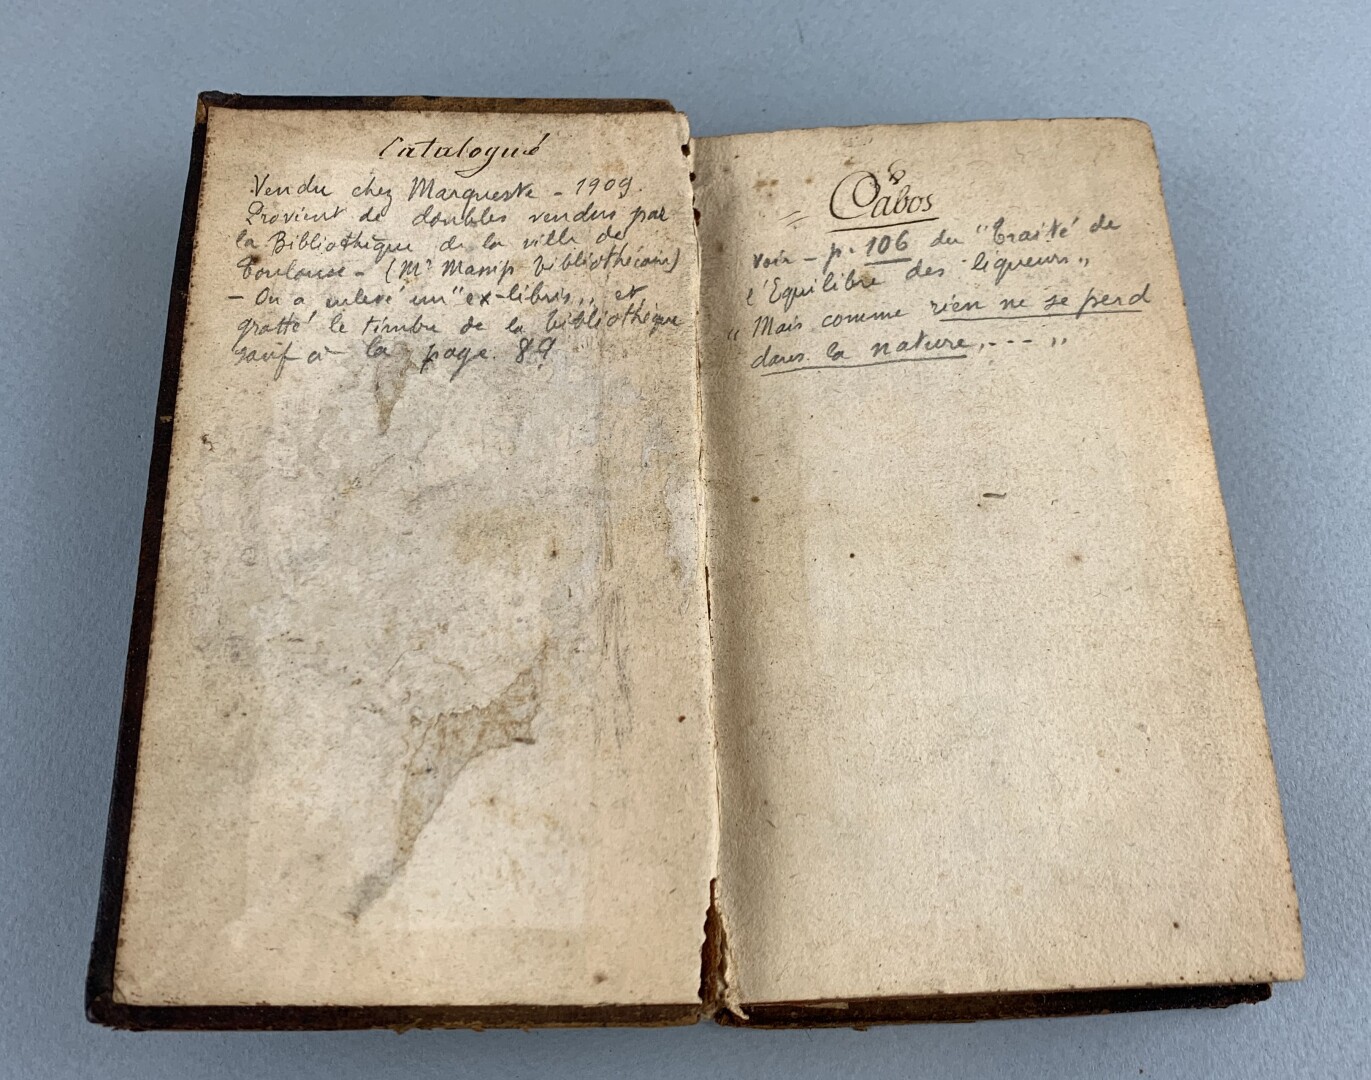 Catalogué
Vendu chez Marqueste - 1909.
Provient de doubles vendus par
la Bibliothèque de la ville de
Toulouse - (Mr Massip bibliothécaire)
- On a enlevé un "ex-libris,, et
gratté le timbre de la bibliothèque
sauf à la page. 89
Cabos
voir - p. 106 du "Traité de
l'Equilibre des liqueurs,,
"Mais comme rien ne se perd
dans la nature,--- ,,